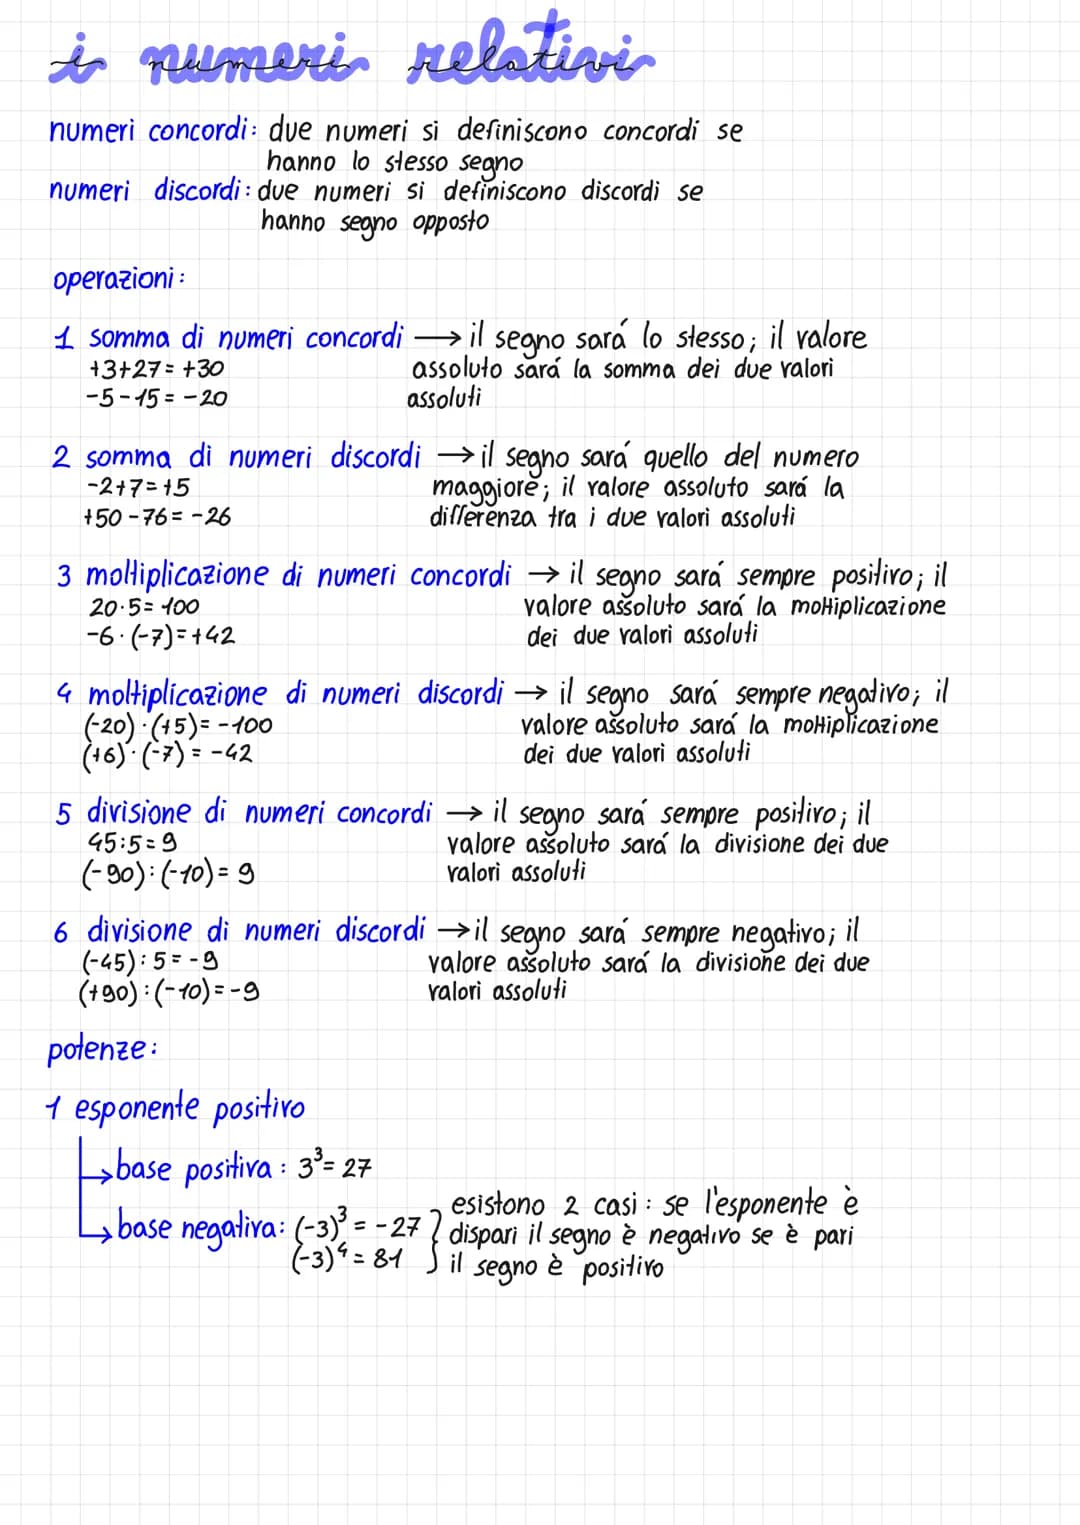 i numeri relativi
numeri concordi: due numeri si definiscono concordi se
hanno lo stesso segno
numeri discordi: due numeri si definiscono discordi se
hanno segno opposto
operazioni:
1 somma di numeri concordi → il segno sará lo stesso; il valore
+3+27= +30 assoluto sará la somma dei due valori
-5-15= -20 assoluti
2 somma di numeri discordi → il segno sará quello del numero
-2+7=+5 maggiore; il valore assoluto sará la
+50-76= -26 differenza tra i due valori assoluti
3 moltiplicazione di numeri concordi → il segno sará sempre positivo; il
20·5= 100 valore assoluto sará la moltiplicazione
-6·(-7)=+42 dei due valori assoluti
4 moltiplicazione di numeri discordi → il segno sará sempre negativo; il
(-20)·(+5)= -100 valore assoluto sará la moltiplicazione
(+6)·(-7)= -42 dei due valori assoluti
5 divisione di numeri concordi → il segno sará sempre positivo; il
45:5=9 valore assoluto sará la divisione dei due
(-90):(-10)= 9 valori assoluti
6 divisione di numeri discordi → il segno sará sempre negativo; il
(-45):5= -9 valore assoluto sará la divisione dei due
(+90):(-10)= -9 valori assoluti
potenze:
1 esponente positivo
base positiva: 3³= 27
base negativa: (-3)³ = -27 } esistono 2 casi: se l'esponente è
(-3)⁴ = 81 dispari il segno è negativo se è pari
il segno è positivo